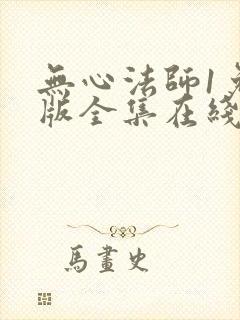 無心法師1
版全集在綫
馬畫史